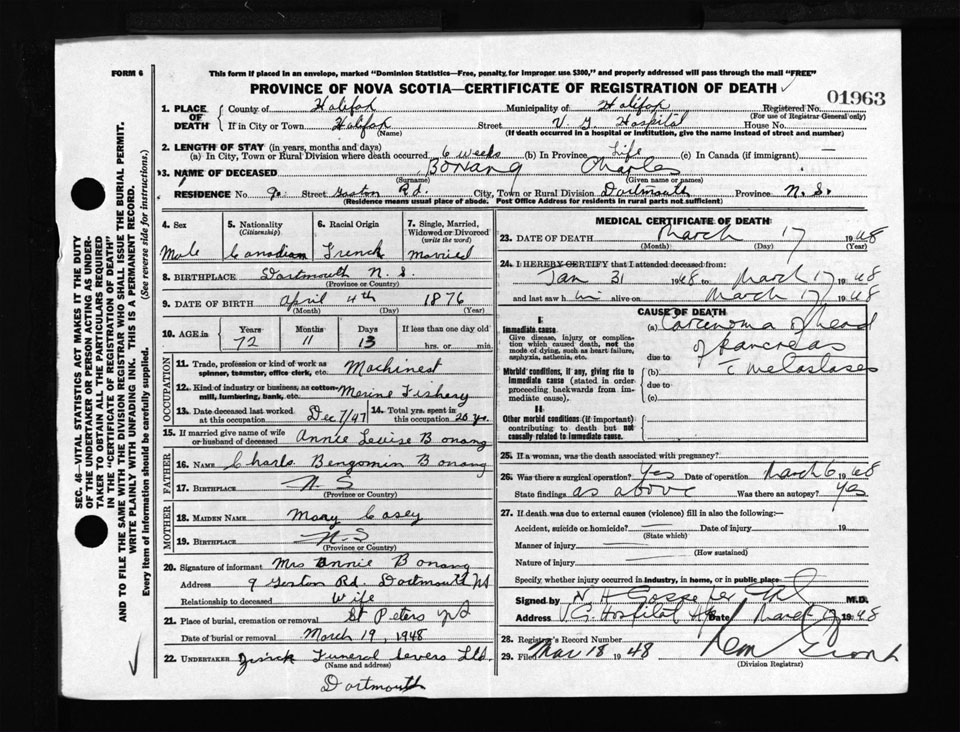 FORM 6
This form if placed in an envelope, marked "Dominion Statistics—Free, penalty for improper use $300," and properly addressed will pass through the mail "FREE"
PROVINCE OF NOVA SCOTIA—CERTIFICATE OF REGISTRATION OF DEATH
01963
1. PLACE OF DEATH
County of Halifax Municipality of Halifax Registered No.
(For use of Registrar General only)
If in City or Town Halifax Street V. G Hospital House No.
(Name) (If death occurred in a hospital or institution, give the name instead of street and number)
2. LENGTH OF STAY (in years, months and days)
(a) In City, Town or Rural Division where death occurred 6 weeks (b) In Province Life (c) In Canada (if immigrant) —
3. NAME OF DECEASED Bonang Charles
(Surname) (Given name or names)
RESIDENCE No. 9 Street Gaston Rd. City, Town or Rural Division Dartmouth Province N. S.
(Residence means usual place of abode. Post Office Address for residents in rural parts not sufficient)
4. Sex
Male
5. Nationality
(Citizenship)
Canadian
6. Racial Origin
French
7. Single, Married, Widowed or Divorced
(write the word)
Married
8. BIRTHPLACE Dartmouth N. S.
(Province or Country)
9. DATE OF BIRTH April 4th 1876
(Month) (Day) (Year)
10. AGE in Years Months Days If less than one day old
72 11 13 hrs. or min.
OCCUPATION
11. Trade, profession or kind of work as spinner, teamster, office clerk, etc. Machinest
12. Kind of industry or business, as cotton-mill, lumbering, bank, etc. Merine Fishery
13. Date deceased last worked at this occupation Dec 7/47
14. Total yrs. spent in this occupation 20 yrs.
15. If married give name of wife or husband of deceased Annie Leuise Bonang
FATHER
16. NAME Charls Bengomin Bonang
17. BIRTHPLACE N. S
(Province or Country)
MOTHER
18. MAIDEN NAME Mary Casey
19. BIRTHPLACE N. S
(Province or Country)
20. Signature of informant Mrs Annie Bonang
Address 9 Geston Rd. Dartmouth NS
Relationship to deceased Wife
21. Place of burial, cremation or removal St Peters NS
Date of burial or removal March 19, 1948
22. UNDERTAKER Funeral Servers Ltd.
(Name and address)
Dartmouth
MEDICAL CERTIFICATE OF DEATH
23. DATE OF DEATH March 17 1948
(Month) (Day) (Year)
24. I HEREBY CERTIFY that I attended deceased from:
Jan 31 1948 to March 17 1948
and last saw him alive on March 17 1948
CAUSE OF DEATH
I
Immediate cause.
Give disease, injury or complication which caused death, not the mode of dying, such as heart failure, asphyxia, asthenia, etc.
(a) Carcinoma of head
of Pancreas
due to
Morbid conditions, if any, giving rise to immediate cause (stated in order proceeding backwards from immediate cause).
(b) c metastases
due to
(c)
II
Other morbid conditions (if important) contributing to death but not causally related to immediate cause.
25. If a woman, was the death associated with pregnancy?
26. Was there a surgical operation? Yes Date of operation March 6 1948
State findings as above Was there an autopsy? Yes
27. If death was due to external causes (violence) fill in also the following:—
Accident, suicide or homicide? — Date of injury 19
(State which)
Manner of injury —
(How sustained)
Nature of injury —
Specify whether injury occurred in industry, in home, or in public place
Signed by M.D.
Address V. G. Hospital Hfx Date March 1948
28. Registrar's Record Number
29. Filed Mar 18 1948
(Division Registrar)
SEC. 46—VITAL STATISTICS ACT MAKES IT THE DUTY
OF THE UNDERTAKER OR PERSON ACTING AS UNDER-
TAKER TO OBTAIN ALL THE PARTICULARS REQUIRED
IN THE "CERTIFICATE OF REGISTRATION OF DEATH"
AND TO FILE THE SAME WITH THE DIVISION REGISTRAR WHO SHALL ISSUE THE BURIAL PERMIT.
WRITE PLAINLY WITH UNFADING INK. THIS IS A PERMANENT RECORD.
Every item of Information should be carefully supplied. (See reverse side for instructions.)